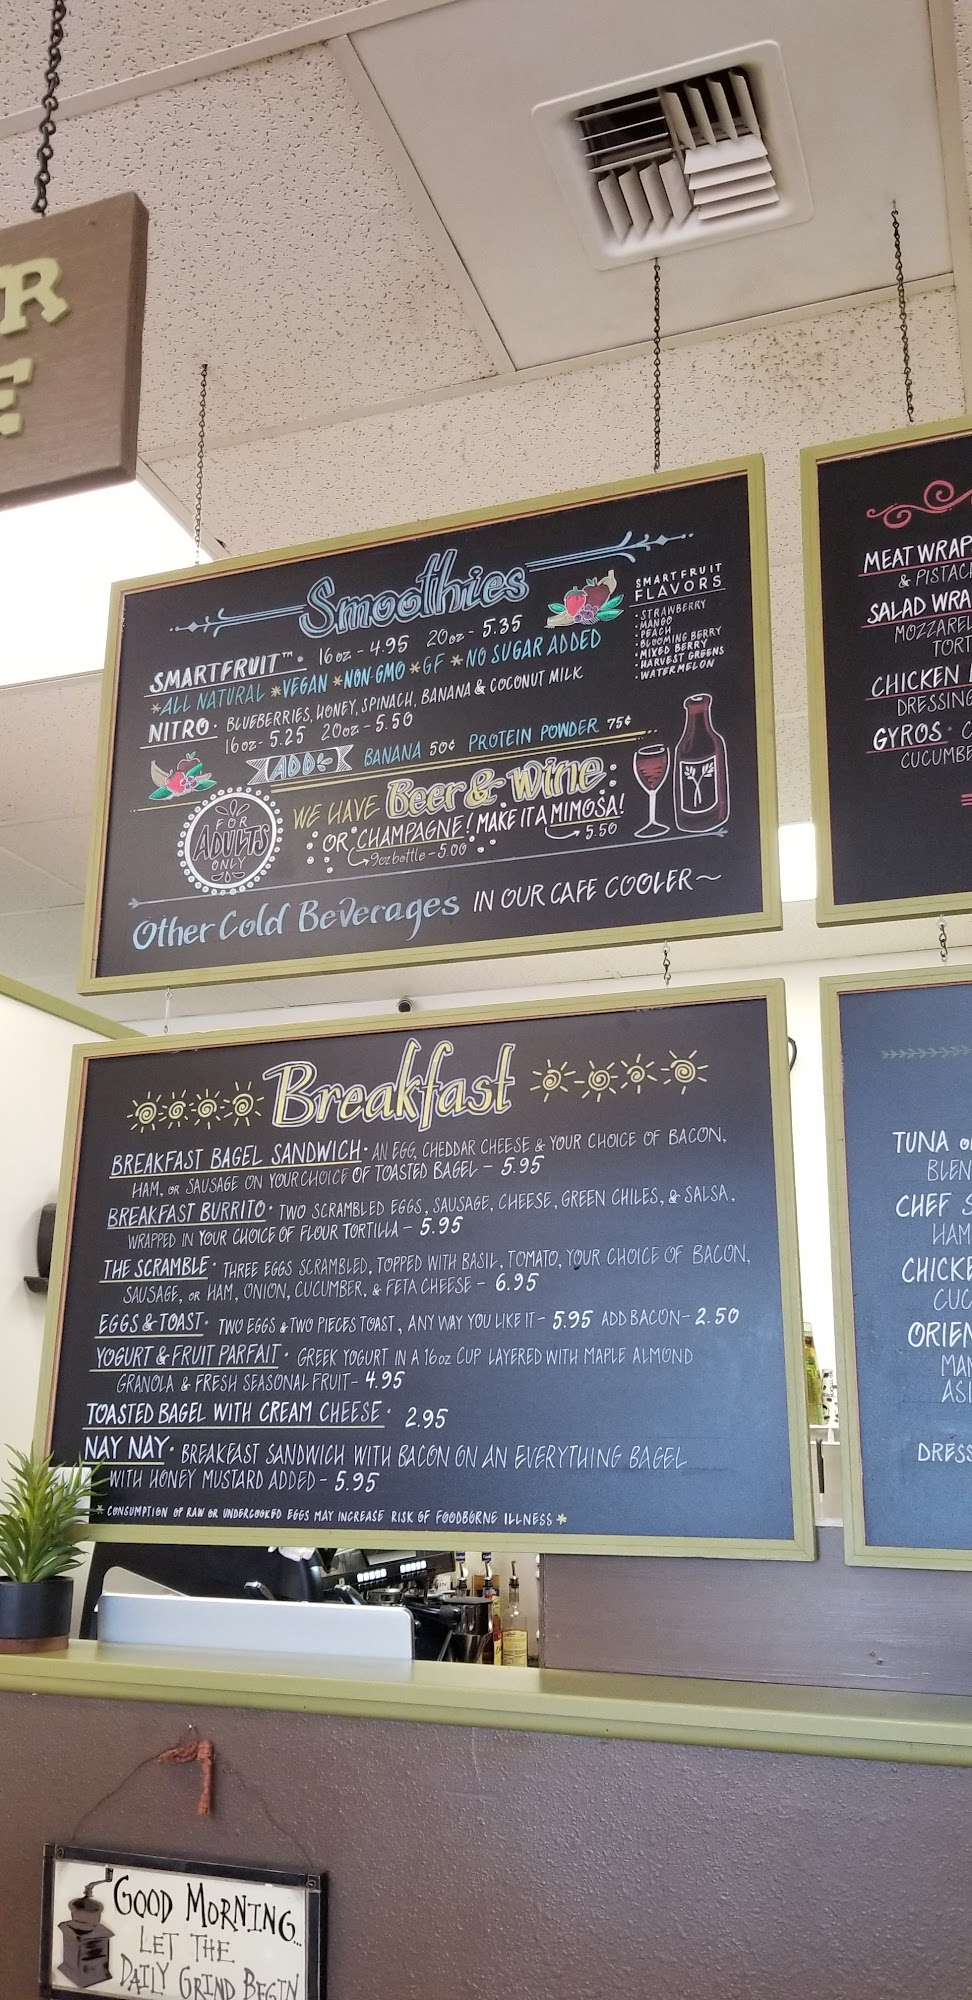 R
E
Smoothies
SMARTFRUIT™ • 16oz - 4.95 20oz - 5.35
*ALL NATURAL *VEGAN *NON-GMO *GF *NO SUGAR ADDED
NITRO • BLUEBERRIES, HONEY, SPINACH, BANANA & COCONUT MILK
16oz - 5.25 20oz - 5.50
ADD BANANA 50¢ PROTEIN POWDER 75¢
SMARTFRUIT
FLAVORS
• STRAWBERRY
• MANGO
• PEACH
• BLOOMING BERRY
• MIXED BERRY
• HARVEST GREENS
• WATERMELON
FOR
ADULTS
ONLY
WE HAVE Beer & Wine
OR CHAMPAGNE! MAKE IT A MIMOSA!
9oz bottle - 5.00
5.50
Other Cold Beverages IN OUR CAFE COOLER~
Breakfast
BREAKFAST BAGEL SANDWICH • AN EGG, CHEDDAR CHEESE & YOUR CHOICE OF BACON,
HAM, OR SAUSAGE ON YOUR CHOICE OF TOASTED BAGEL - 5.95
BREAKFAST BURRITO • TWO SCRAMBLED EGGS, SAUSAGE, CHEESE, GREEN CHILES, & SALSA,
WRAPPED IN YOUR CHOICE OF FLOUR TORTILLA - 5.95
THE SCRAMBLE • THREE EGGS SCRAMBLED, TOPPED WITH BASIL, TOMATO, YOUR CHOICE OF BACON,
SAUSAGE, OR HAM, ONION, CUCUMBER, & FETA CHEESE - 6.95
EGGS & TOAST • TWO EGGS & TWO PIECES TOAST, ANY WAY YOU LIKE IT - 5.95 ADD BACON - 2.50
YOGURT & FRUIT PARFAIT • GREEK YOGURT IN A 16oz CUP LAYERED WITH MAPLE ALMOND
GRANOLA & FRESH SEASONAL FRUIT - 4.95
TOASTED BAGEL WITH CREAM CHEESE • 2.95
NAY NAY • BREAKFAST SANDWICH WITH BACON ON AN EVERYTHING BAGEL
WITH HONEY MUSTARD ADDED - 5.95
* CONSUMPTION OF RAW OR UNDERCOOKED EGGS MAY INCREASE RISK OF FOODBORNE ILLNESS *
MEAT WRAP
& PISTAC
SALAD WRA
MOZZAREL
TORT
CHICKEN
DRESSING
GYROS • C
CUCUMBE
TUNA
BLEN
CHEF S
HAM
CHICKE
CUC
ORIEN
MAN
ASI
DRESS
GOOD MORNING...
LET THE
DAILY GRIND BEGIN